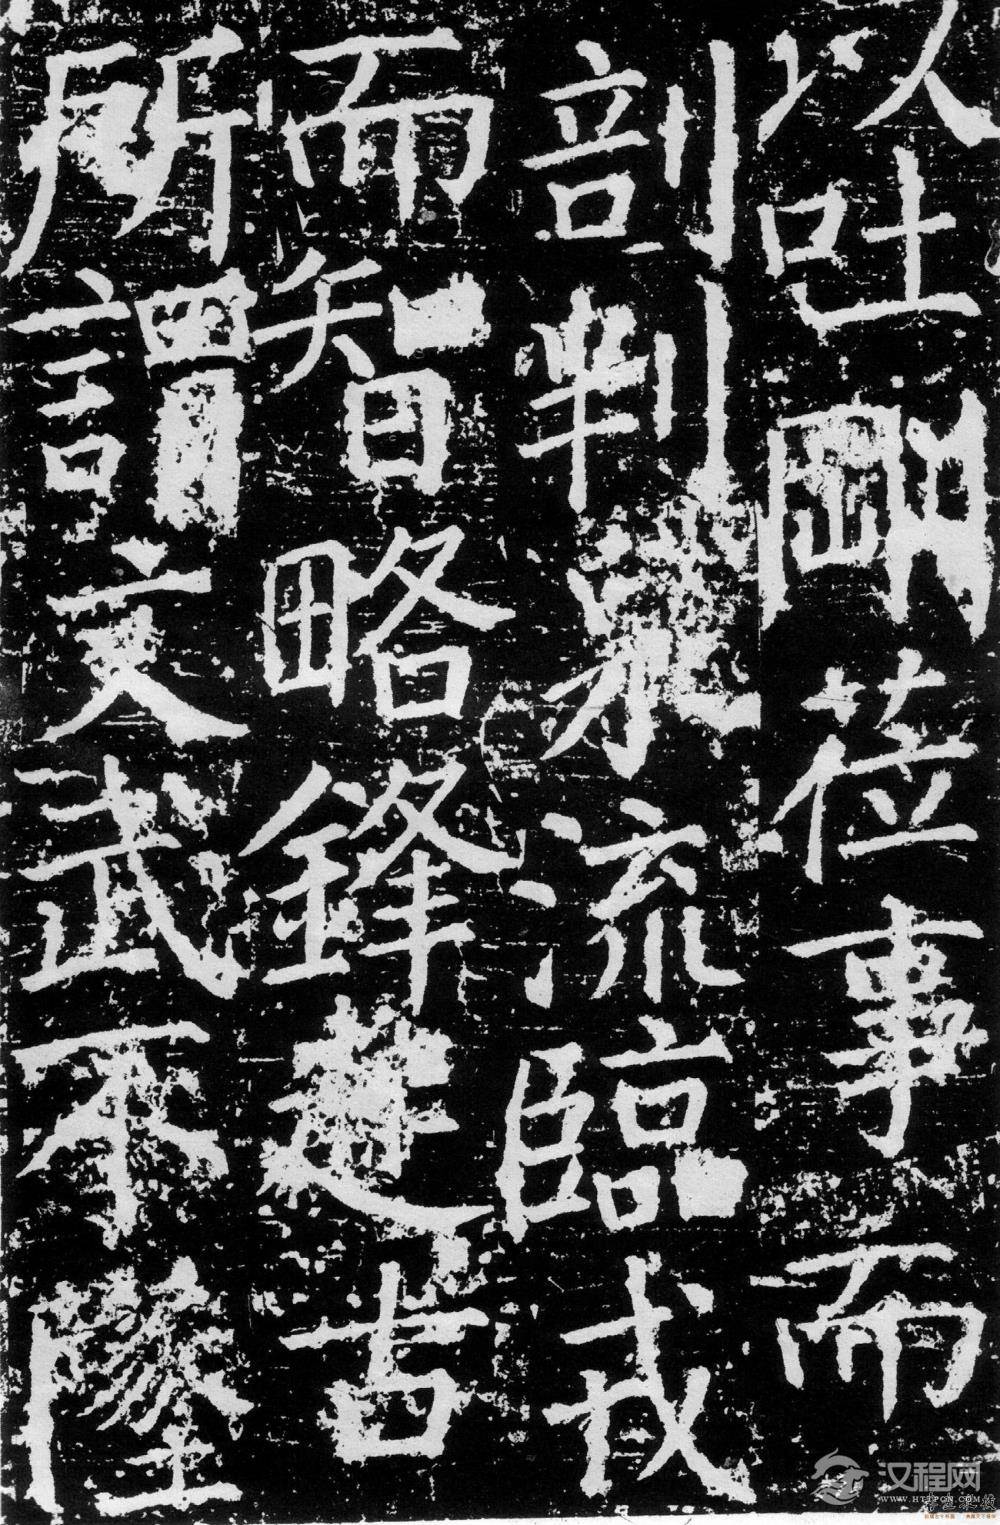 以吐剛莅事而
剖判流臨戎
而智略鋒古
所謂文武不墜
汉程网
WWW.HTTPCN.COM